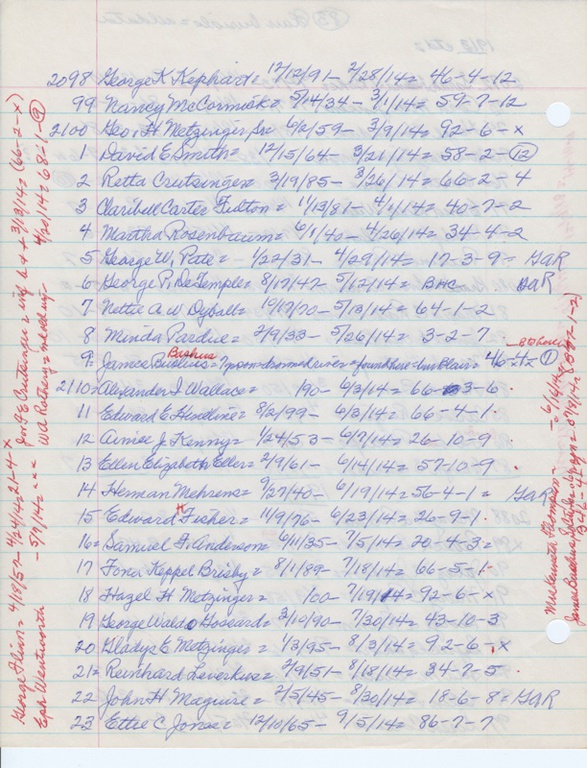 2098 George K Kephart = 12/12/91 - 2/28/14 = 46-4-12
99 Nancy McCormick = 5/14/34 - 3/1/14 = 59-7-12
2100 Geo. H Metzinger Sr 6/2/59 - 3/9/14 = 92-6-x
1 David E Smith = 12/15/64 - 3/21/14 = 58-2-(12)
2 Retta Crutsinger = 3/19/85 - 3/26/14 = 66-2-4
3 Claribell Carter Fulton = 11/13/81 - 4/1/14 = 40-7-2
4 Martha Rosenbaum = 6/1/40 - 4/26/14 = 34-4-2
5 George W. Pate = 1/22/31 - 4/29/14 = 17-3-9 = GAR
6 George P. DeTemple = 8/17/47 5/12/14 = BHC GAR
7 Nettie A W Dybalt = 10/17/70 - 5/13/14 = 64-1-2
8 Minda Pardue = 2/9/33 - 5/26/14 = 3-2-7
9 James = Bushua = 46-4-2 (1)
2110 = Alexander I Wallace = 190 - 6/3/14 = 66-3-6
11 Edward E Headline = 8/2/99 - 6/3/14 = 66-4-1
12 Aimee J. Kenny = 1/24/53 - 6/7/14 = 26-10-9
13 Ellen Elizabeth Eller = 2/9/61 - 6/14/14 = 57-10-9
14 Herman Mehrens = 9/27/40 - 6/19/14 = 56-4-1 = GAR
15 Edward H Fisher = 11/9/76 - 6/23/14 = 26-9-1
16 = Samuel F. Anderson = 6/11/35 - 7/5/14 = 20-4-3 =
17 Fona Keppel Brisby = 8/11/89 - 7/18/14 = 66-5-1
18 Hazel H Metzinger = 1/00 - 7/19/14 = 92-6-x
19 George Waldo Hoseard = 3/10/90 - 7/30/14 = 43-10-3
20 Gladys E Metzinger = 1/3/95 - 8/3/14 = 92-6-x
21 = Reinhard Leverkus = 2/9/51 - 8/18/14 = 34-7-5
22 John H Maguire = 2/5/45 - 8/30/14 = 18-6-8 = GAR
23 Ettie C Jones = 12/10/65 - 9/5/14 = 86-7-7
George Flinn = 4/18/52 - 4/24/14 = 21-4-x
Eph Wentworth - 5/9/14 = xxx
E Crutsinger 3/13/14 = (66-2-x)
4/20/14 = 68-1-(9)
Mrs Kenneth Thompson = - 6/14/14 =